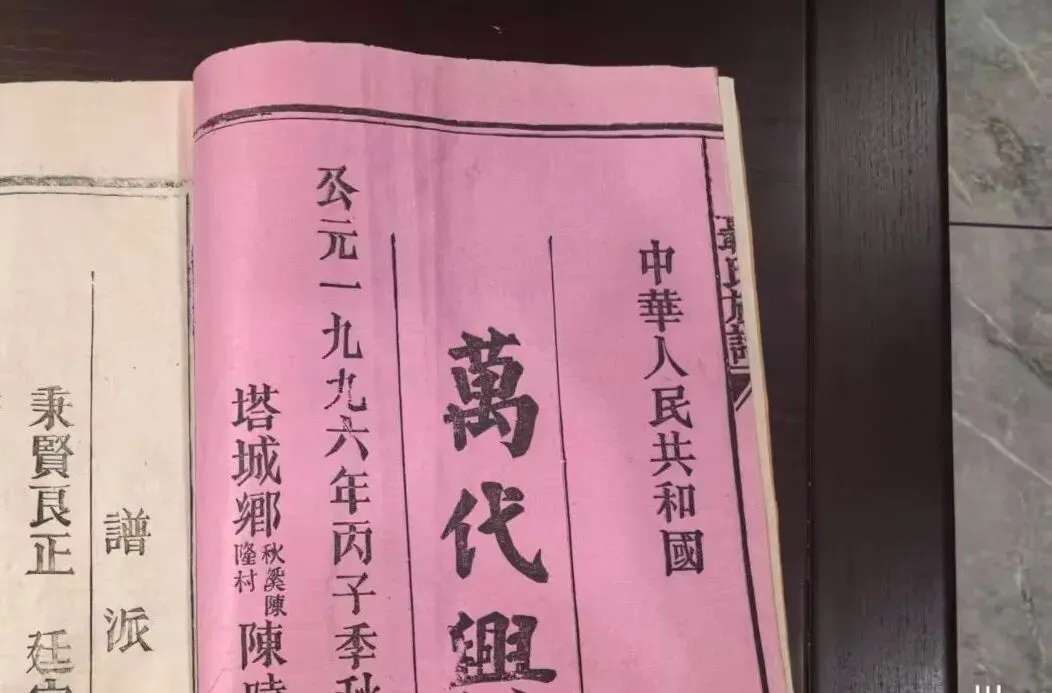 中華人民共和國
萬代興
公元一九九六年丙子季秋
塔城鄉秋溪陳隆村陳
譜派
秉賢良正 廷
氏族譜